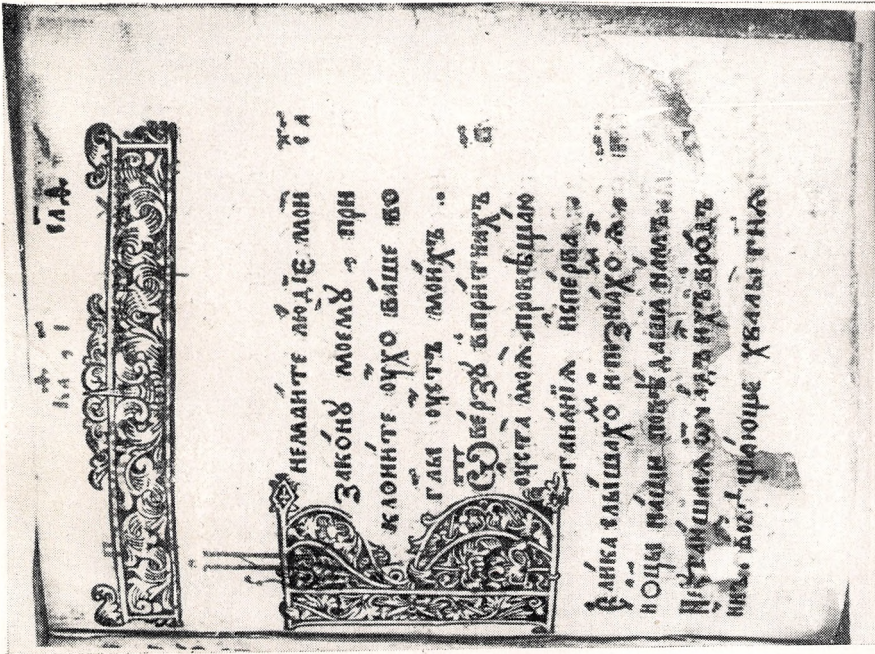 немли́те лю́дїе мои́
Зако́нꙋ моемꙋ̀ , при
клони́те ᲂу҆́хо ва́ше во
глы ᲂу҆стъ мои́хъ ..
Ѿве́рзꙋ впри́тчахъ
ᲂу҆ста моѧ̀, провѣща́ю
гана́нїѧ и́сперва
Е҆ли́ка слы́шахо и позна́хо ѧ
иоцы на́ши повѣ́даша намъ
Неꙋтаи́шасѧ ѿ ча́дъ и́хъ вродъ
инъ возвѣща́юще хвалы̀ гнѧ